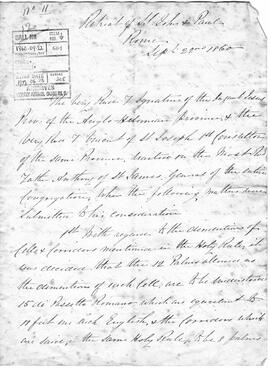 No 11
Retreat of St John & Paul
Rome
Sept 22nd 1860
The Very Revd F Ignatius of the Infant Jesus
Prov. of the Anglo Hibernian Province, & the
Very Revd F Vincent of St Joseph 1st Consultor
of the same Province, waited on the Most Revd
Father Anthony of St James, General of the entire
Congregation, when the following matters were
submitted to his consideration
1st With regard to the dimensions of
Cells & Corridors mentioned in the Holy Rules, it
was decided, that the 12 Palms allowed as
the dimensions of each Cell, are to be understood
15 di Passetto Romano which are equivalent to
11 feet an inch English, & the Corridors which
are said, in the same Holy Rule, to be 8 palms